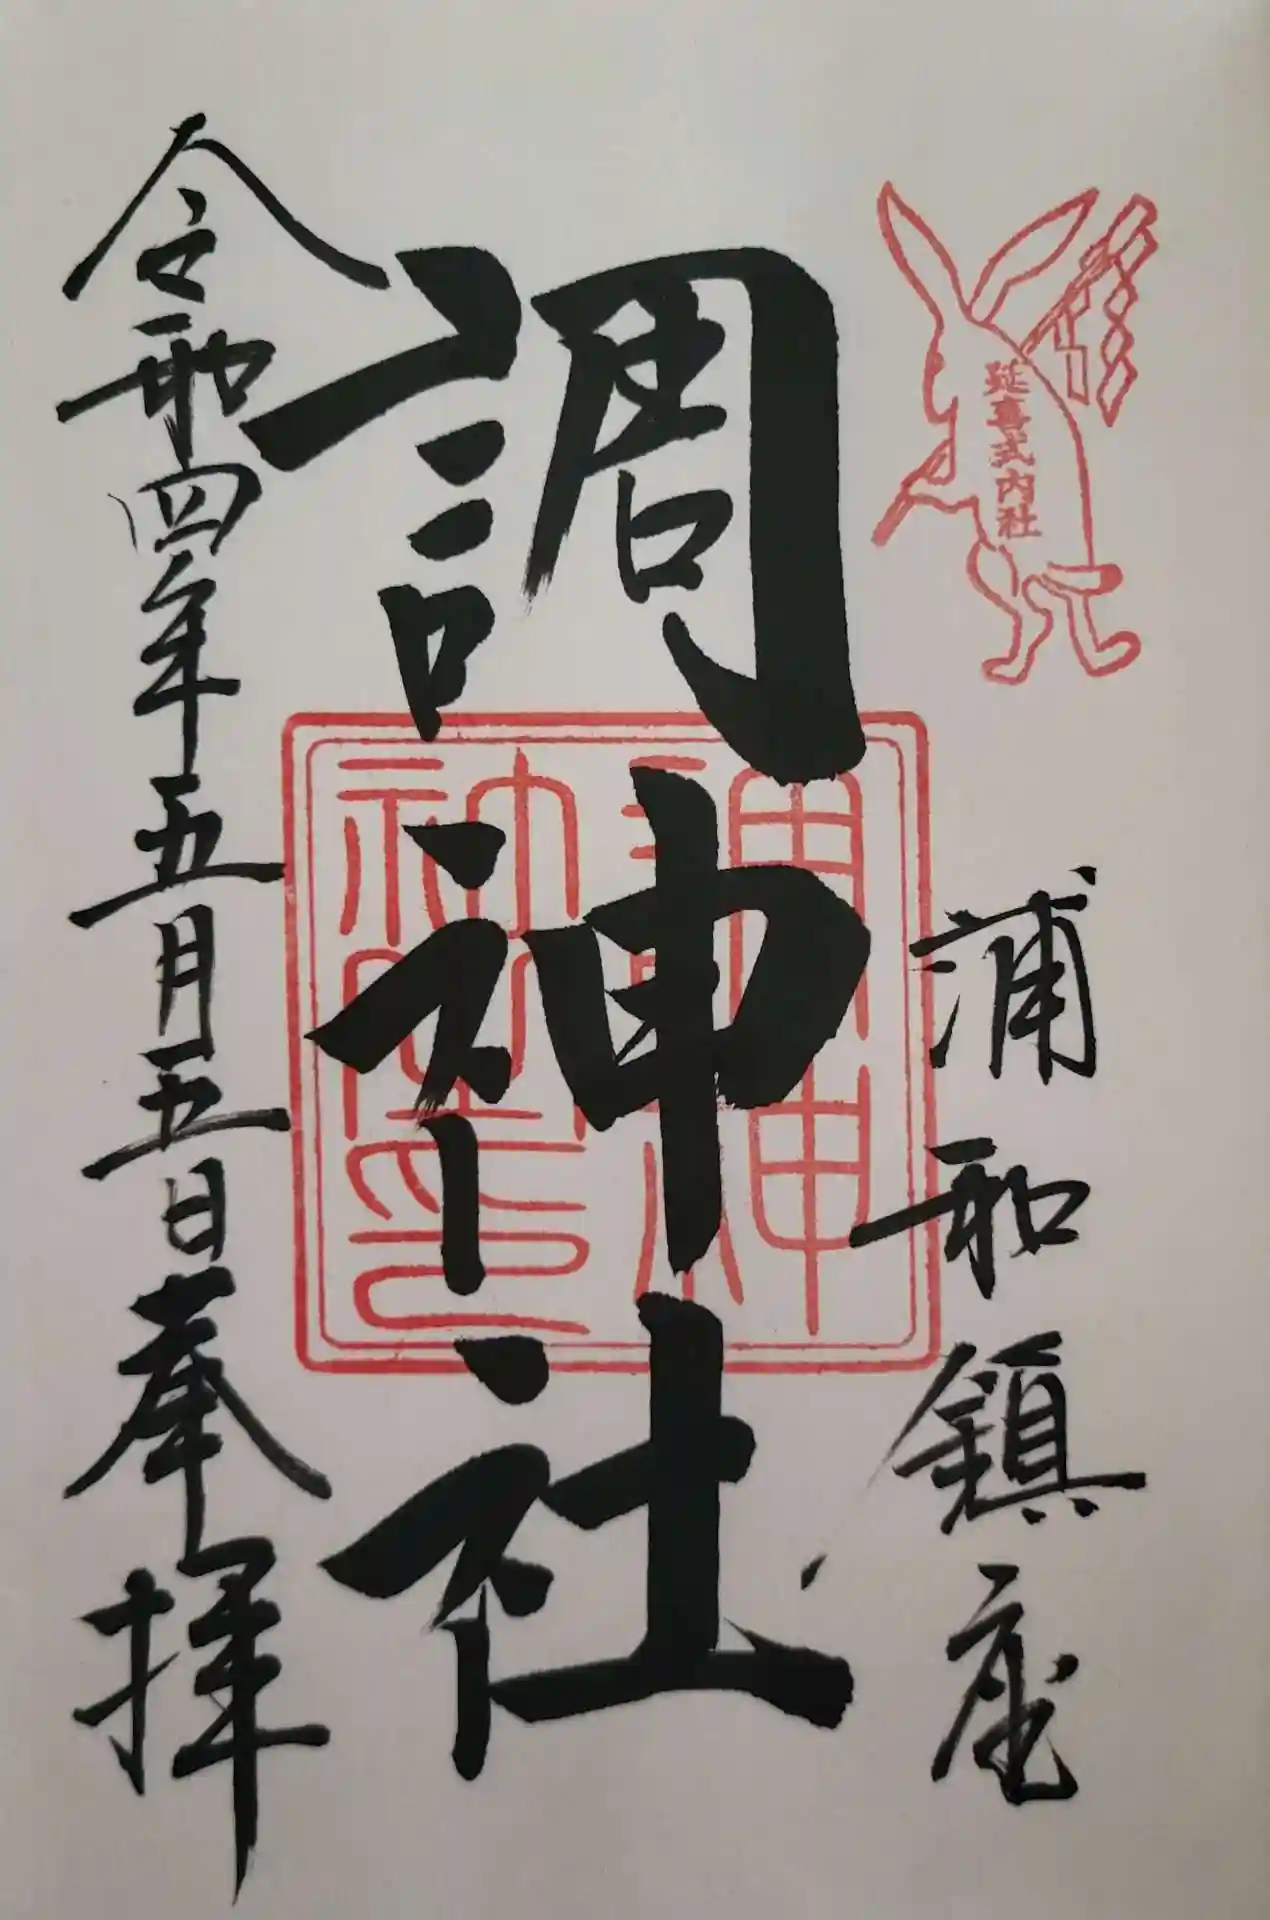 延喜式内社
浦和鎮座
調神社
調神社神璽之印
令和四年五月五日奉拝